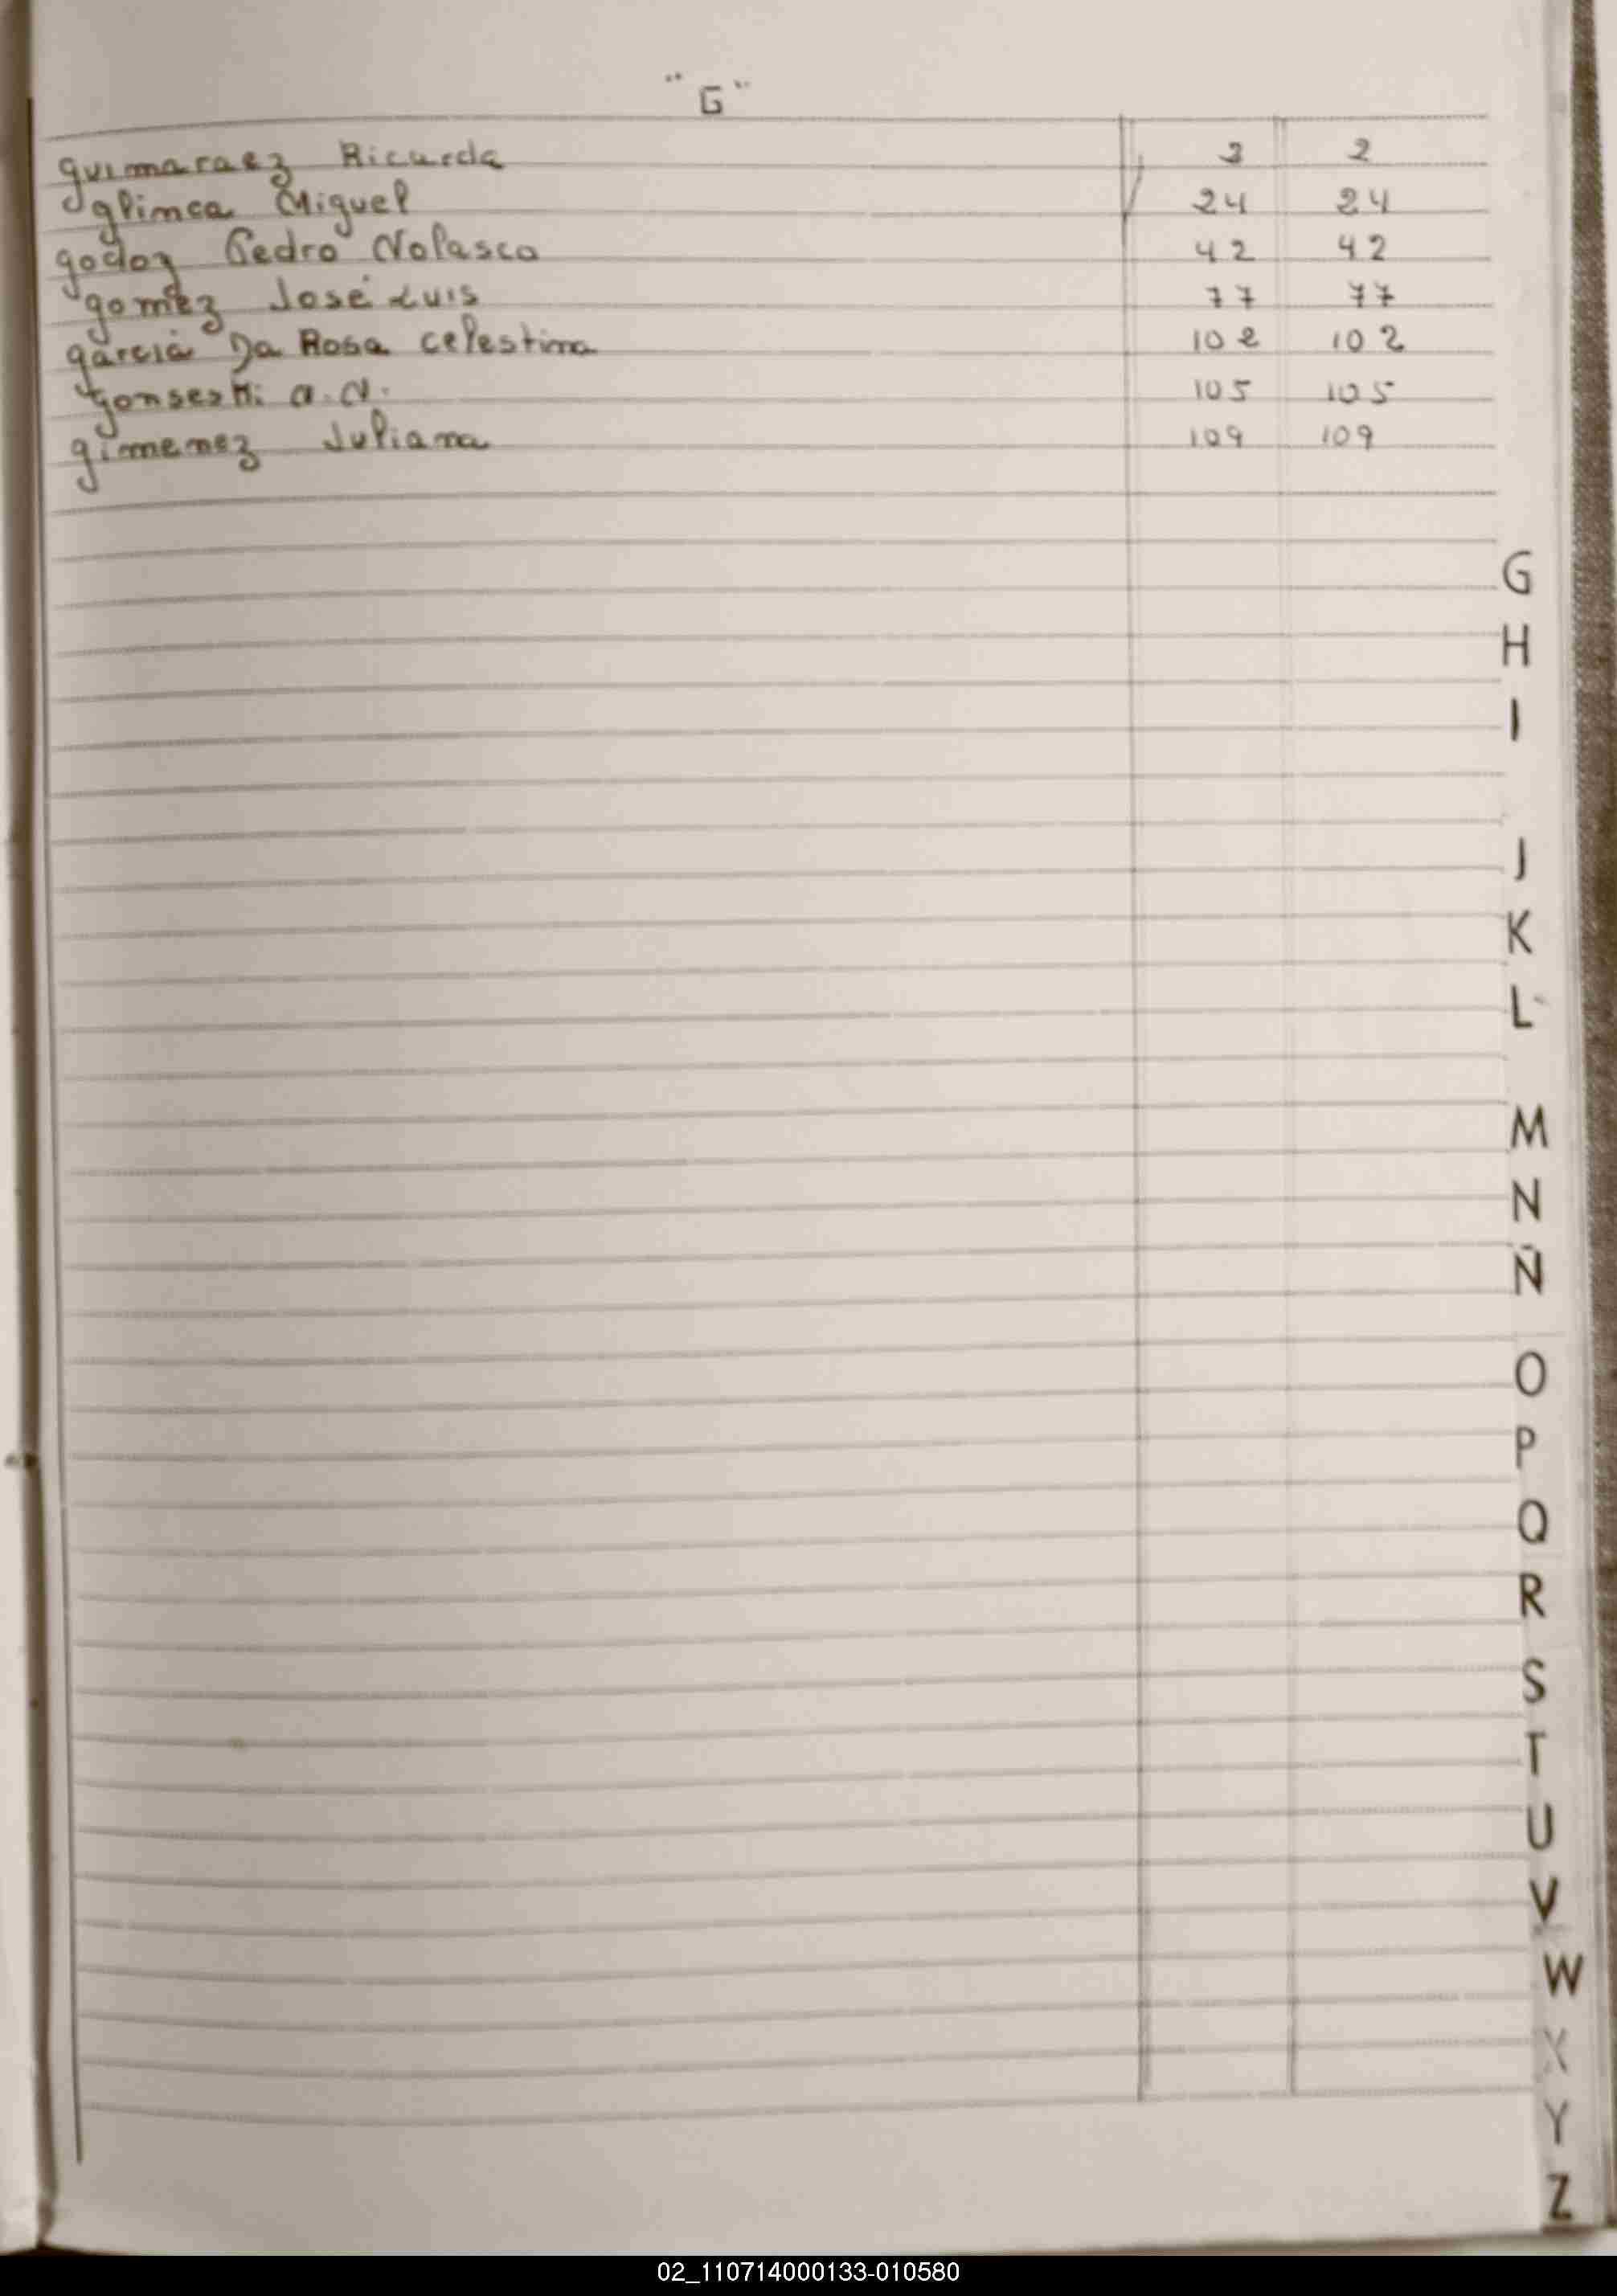 "G"
guimaraez Ricarda 2 2
glimca Miguel 24 24
godoy Pedro Nolasco 42 42
gomez José Luis 77 77
garcia Da Rosa Celestina 102 102
a. N. 105 105
gimenez Juliana 109 109
G
H
I
J
K
L
M
N
Ñ
O
P
Q
R
S
T
U
V
W
X
Y
Z
02_110714000133-010580